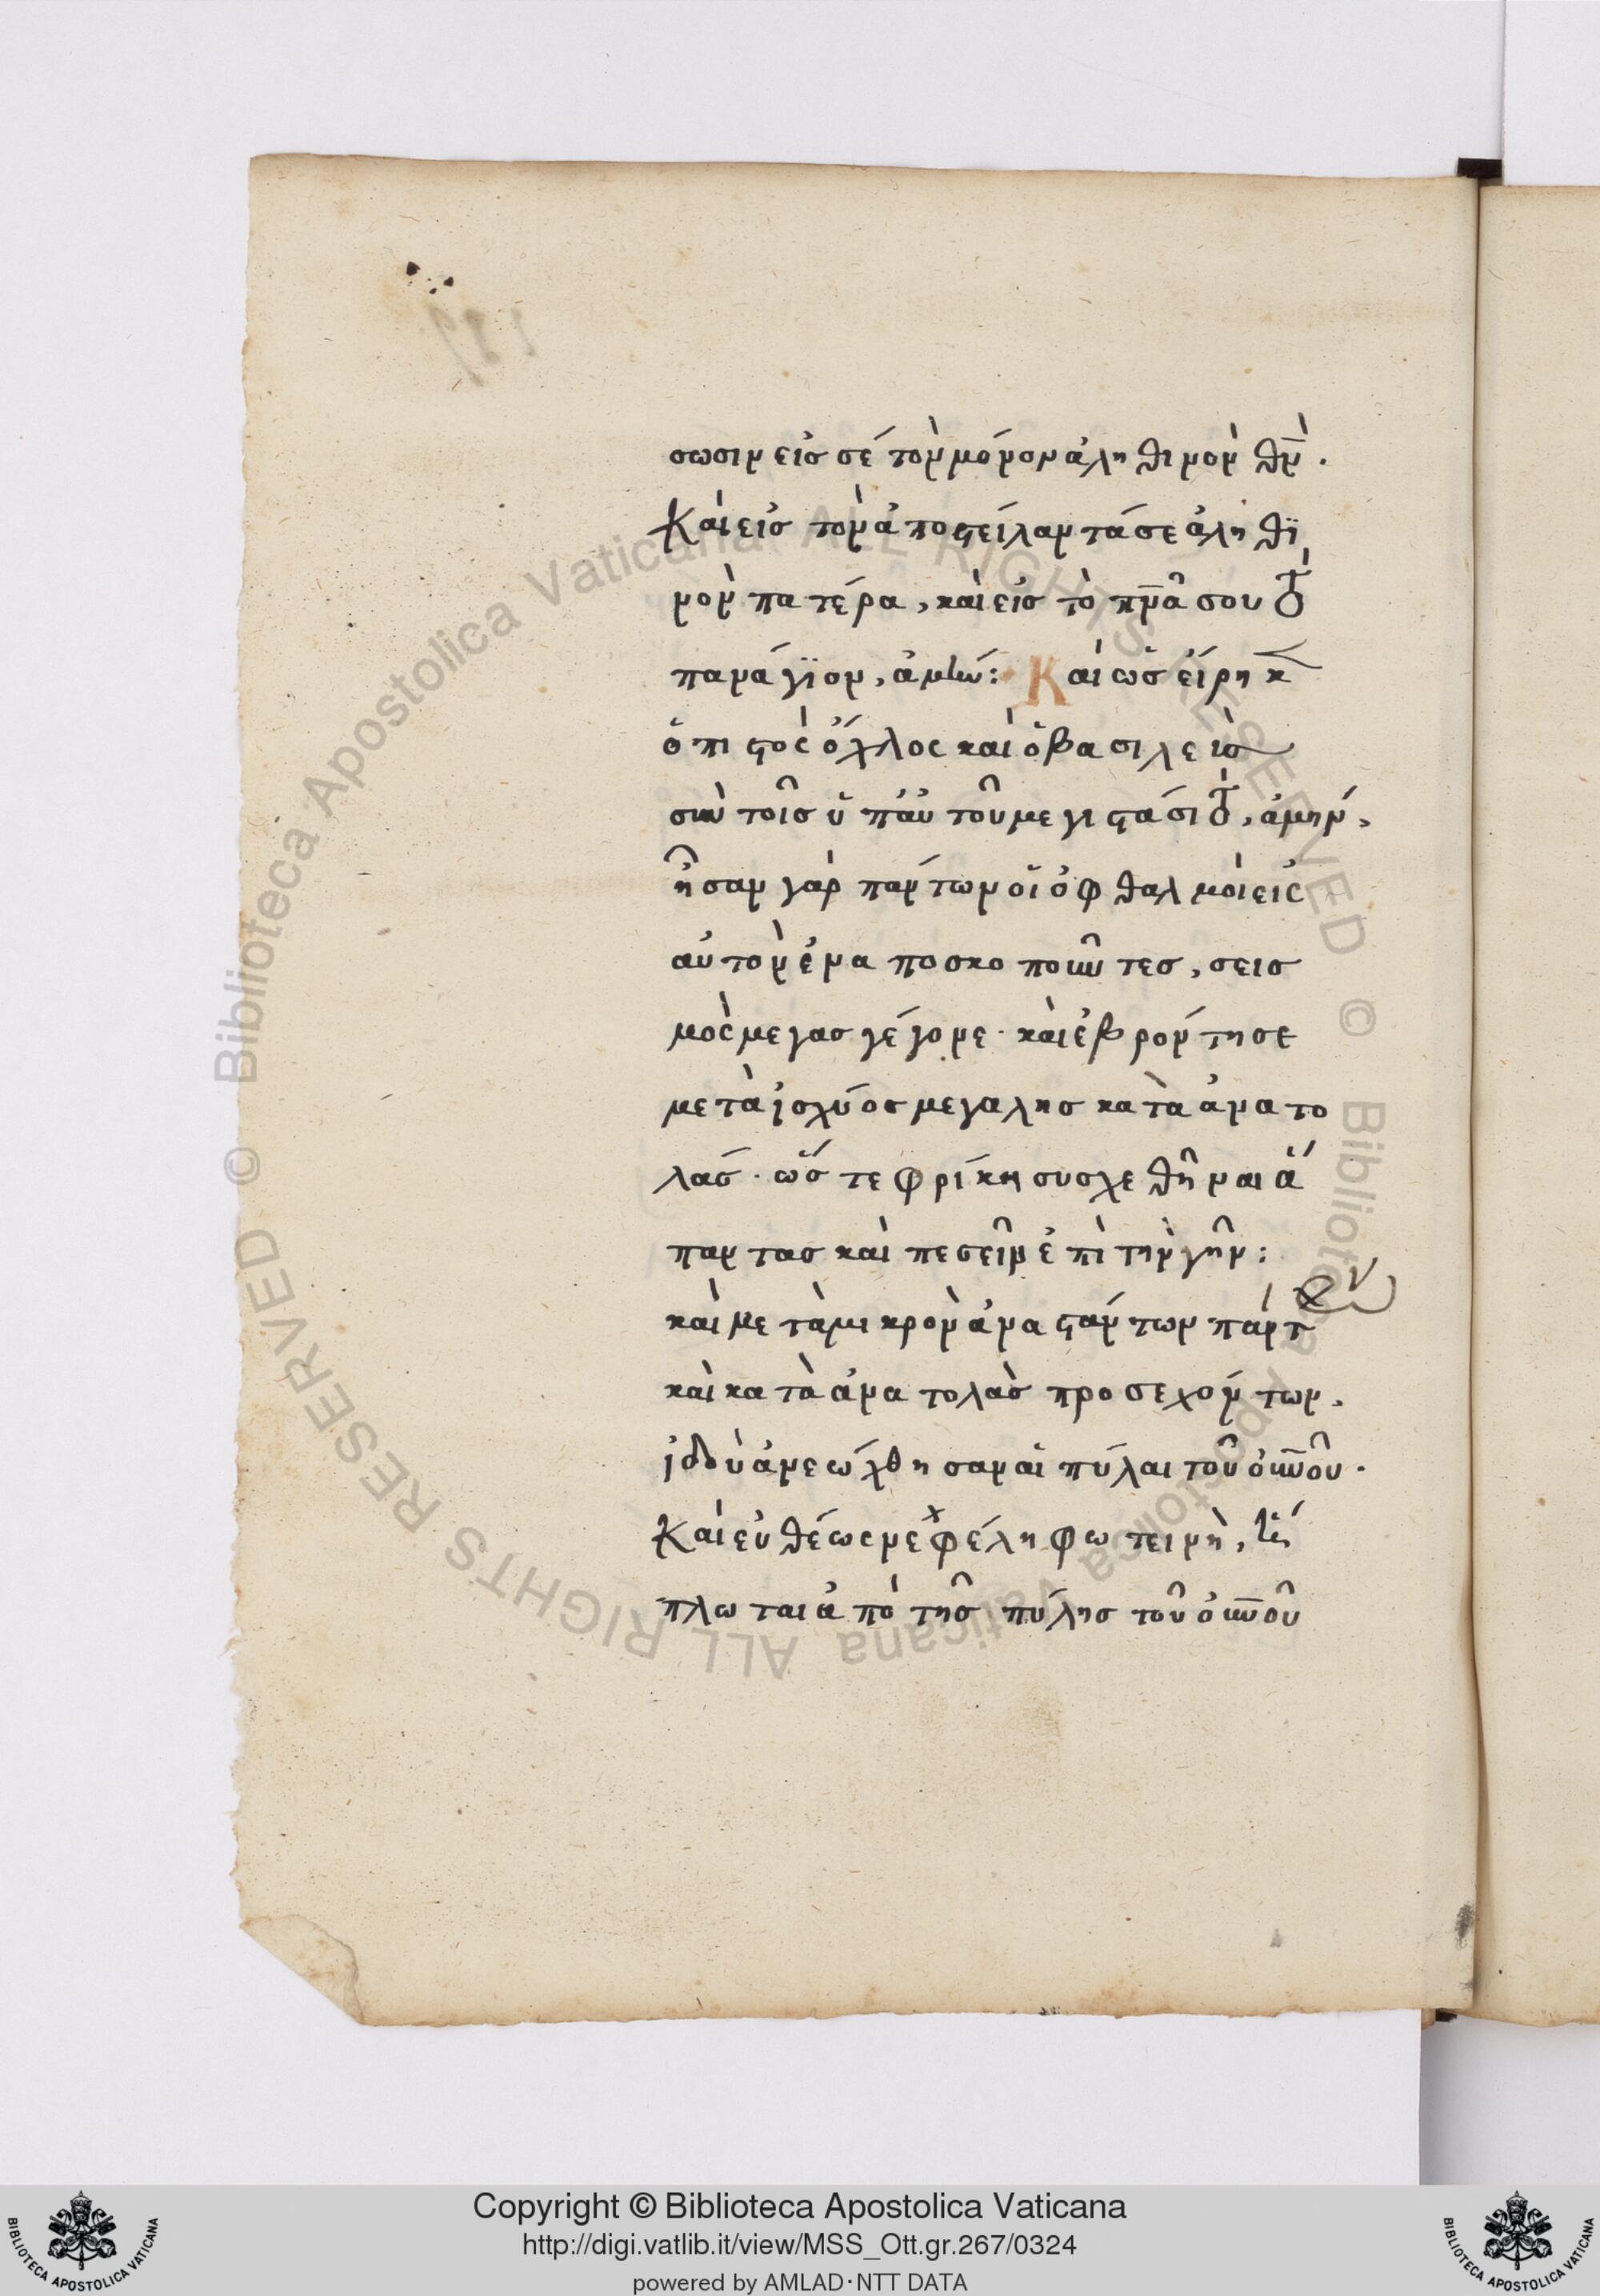 σωσιν εἰς σέ τὸν μόνον ἀληθινὸν θν̅.
Καὶ εἰς τὸν ἀποστείλαντά σε ἀληθϊ
νὸν πατέρα, καὶ εἰς τὸ πν̅ᾶ σου τὸ
πανάγϊον, ἀμήν: Καὶ ὡς εἴρηκ
ὁ πιστὸς ὄχλος καὶ ὁ βασιλεὺς
σὺν τοῖς ὑπ' αὐτοῦ μεγιστάσι τὸ, ἀμήν,
ἦσαν γὰρ πάντων οἱ ὀφθαλμοὶ εἰς
αὐτὸν ἐναποσκοποῦντες, σεισ
μὸς μεγας γέγονε· καὶ ἐβρόντησε
μετὰ ἰσχύος μεγαλης κατὰ ἀνατο
λάς· ὥστε φρίκη συσχεθῆναι ἅ
παντας καὶ πεσεῖν ἐπὶ τὴν γῆν:
καὶ μετὰ μικρὸν ἀναστάντων πάντ
καὶ κατὰ ἀνατολὰς προσεχόντων,
ἰδοὺ ἀνεώχθησαν αἱ πύλαι τοῦ οὐν̅οῦ.
Καὶ εὐθέως νεφέλη φωτεινὴ,
πλωται ἀπὸ τῆς πύλης τοῦ οὐν̅οῦ
Copyright © Biblioteca Apostolica Vaticana
http://digi.vatlib.it/view/MSS_Ott.gr.267/0324
powered by AMLAD·NTT DATA